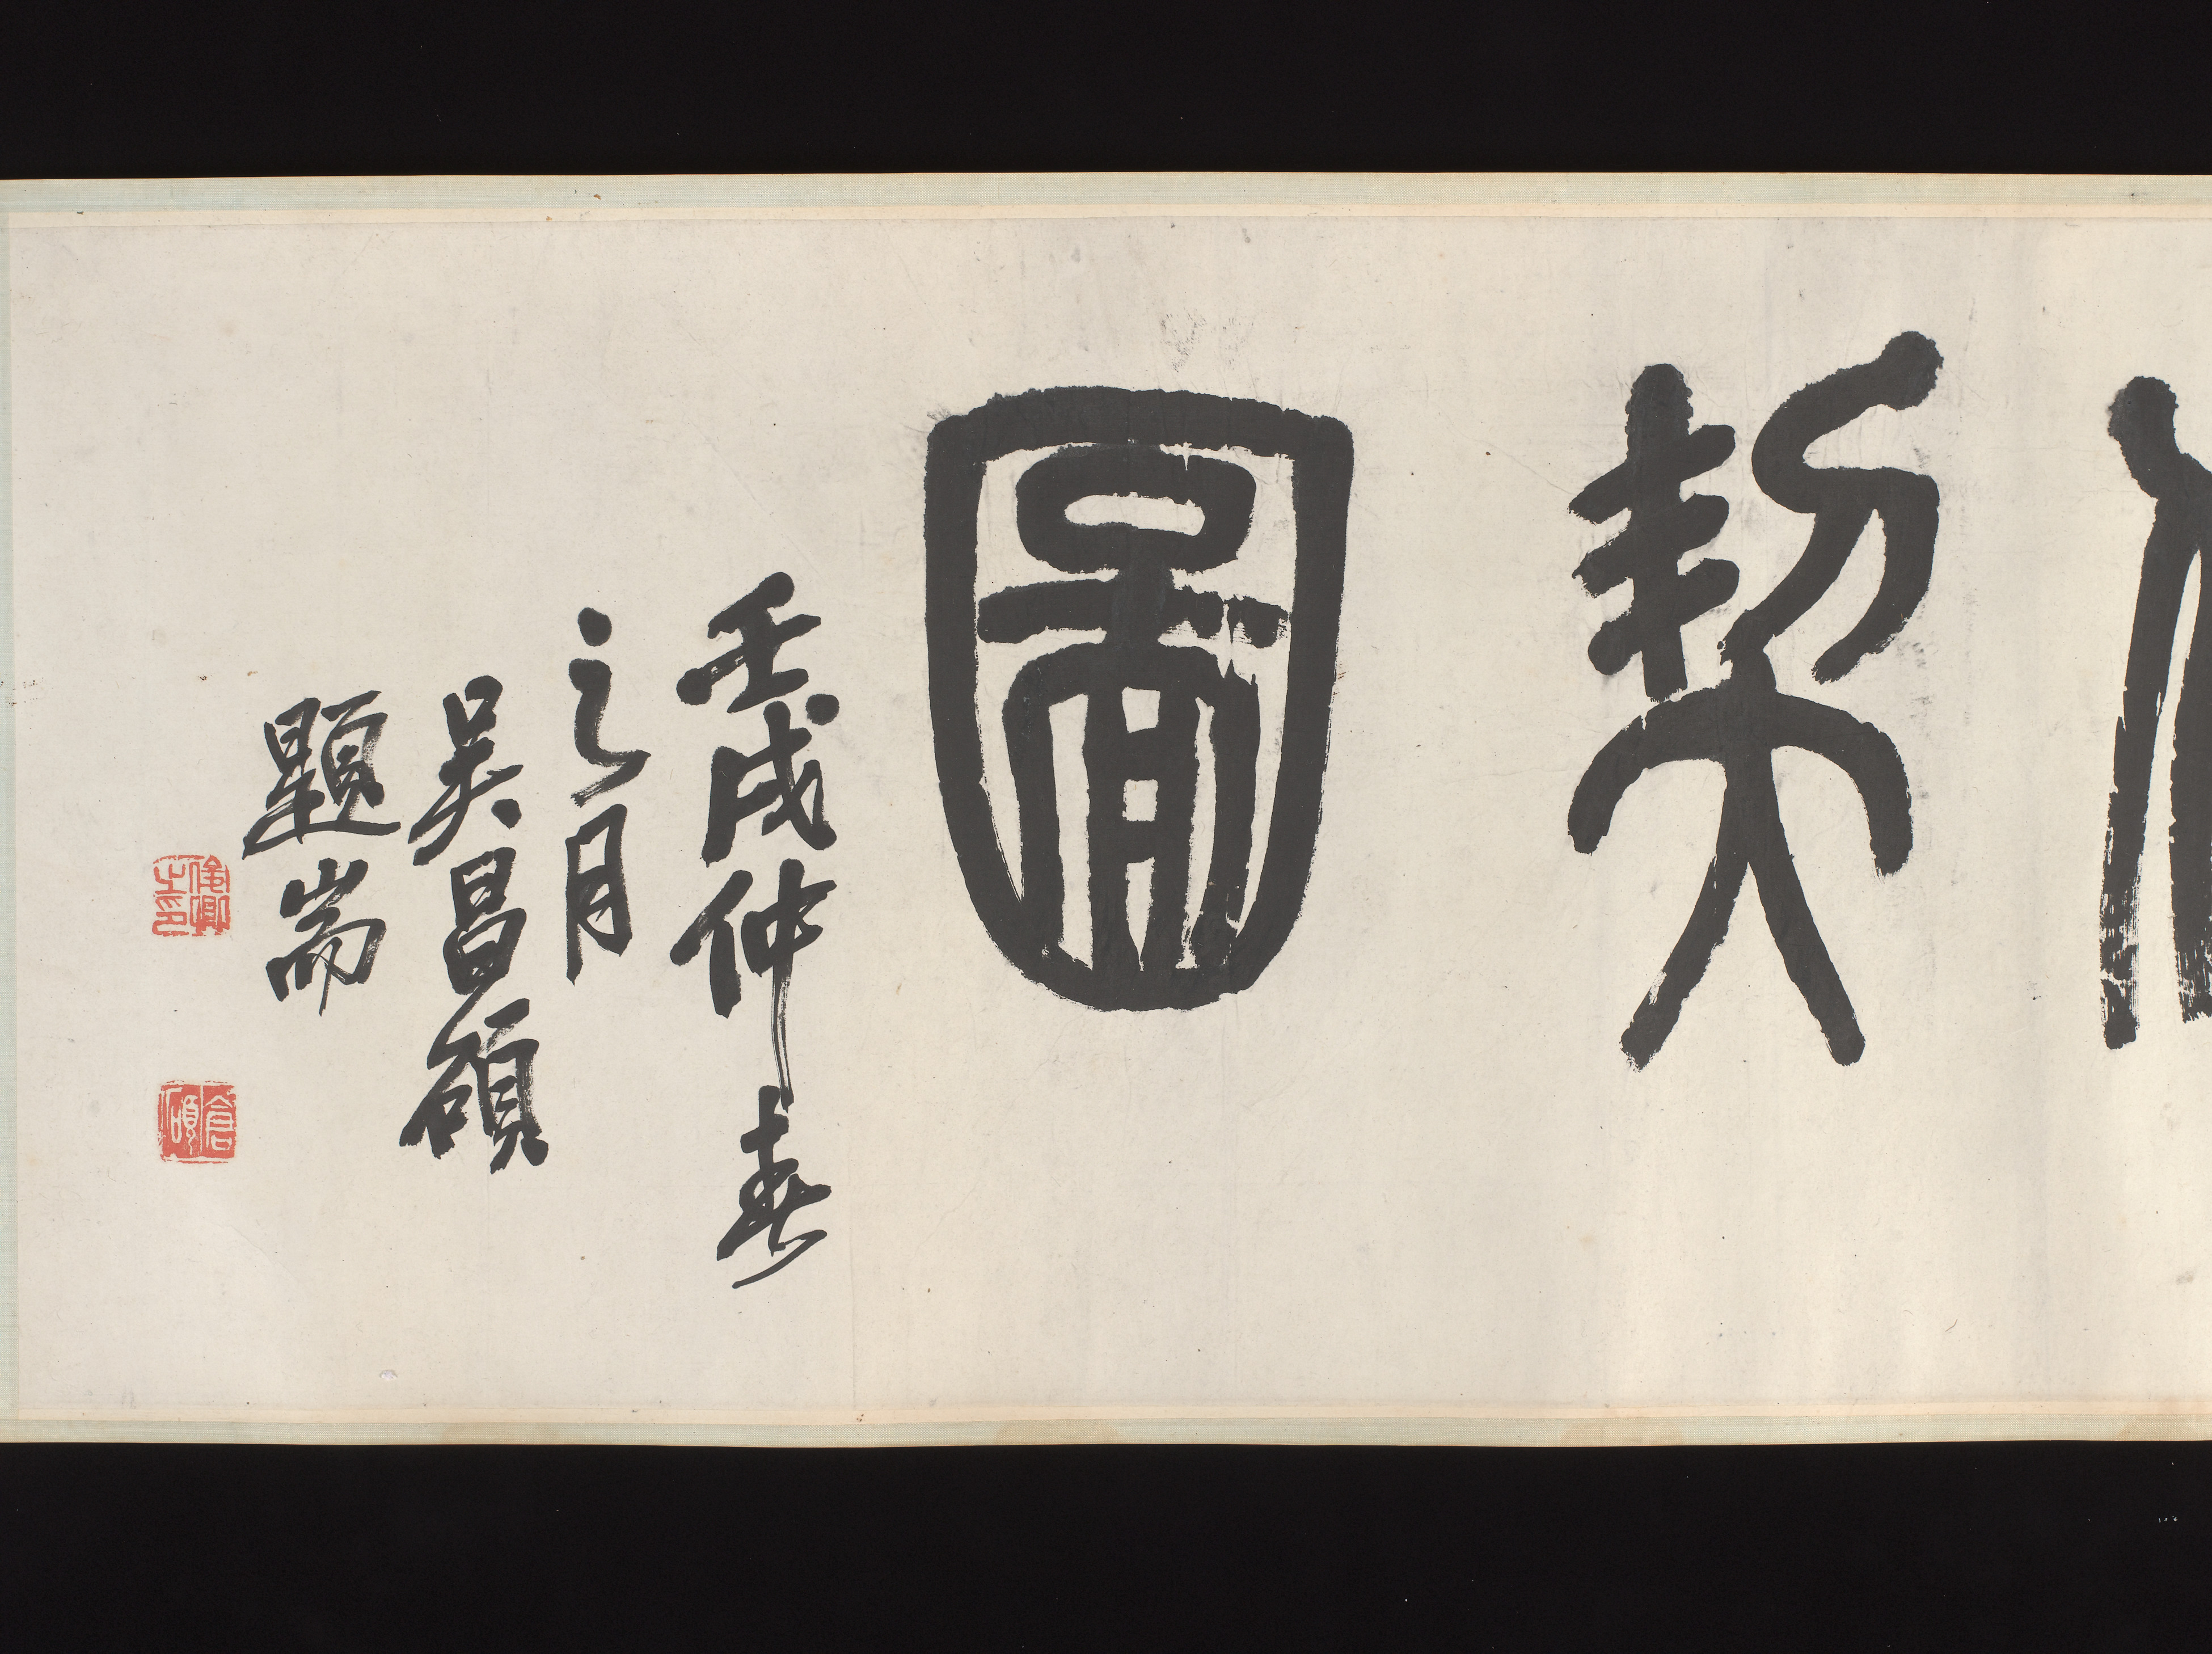 契圖
壬戌仲春
之月
吳昌碩
題耑
俊卿之印
倉碩